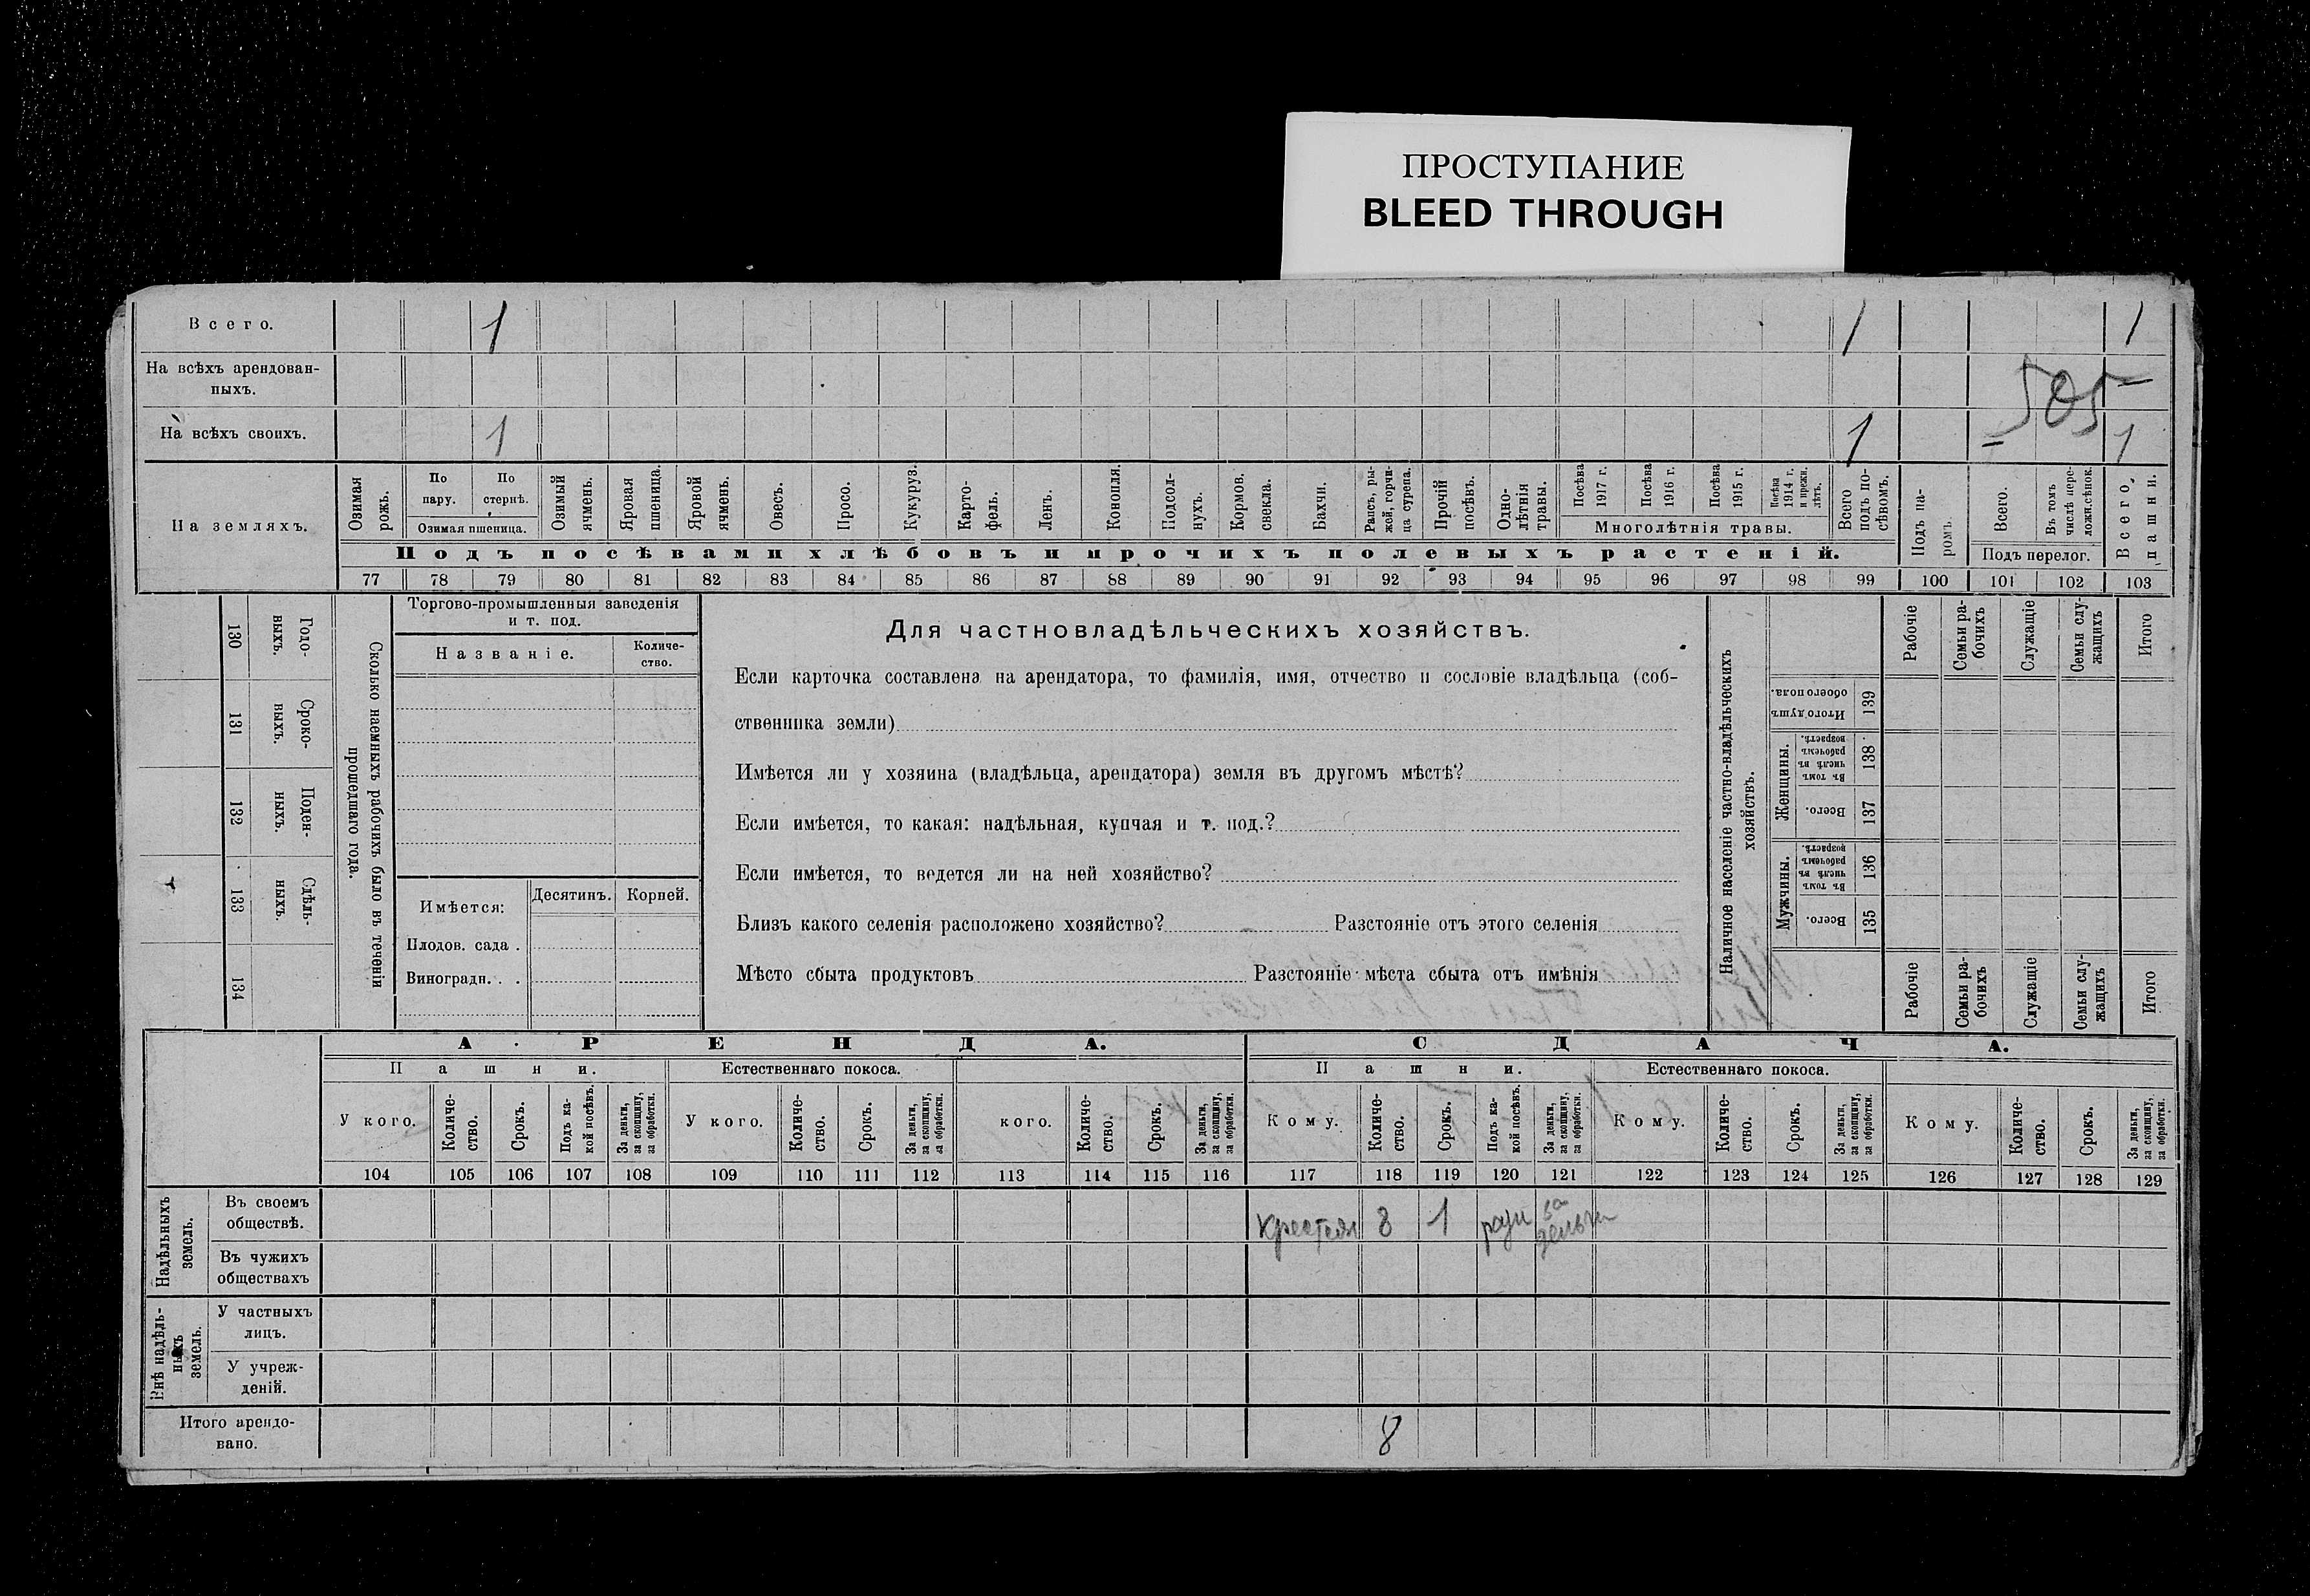 ПРОСТУПАНИЕ
BLEED THROUGH
Всего. 1 1 1
На всѣхъ арендован-
ныхъ.
505
На всѣхъ своихъ. 1 1 1
На земляхъ.
Озимая рожь.
По пару.
По стернѣ.
Озимая пшеница.
Озимый ячмень.
Яровая пшеница.
Яровой ячмень.
Овесъ.
Просо.
Кукуруз.
Карто-
фель.
Ленъ.
Конопля.
Подсол-
нухъ.
Кормов. свекла.
Бахчи.
Рапсъ, ры-
жей, горчи-
ца сурепа.
Прочій посѣвъ.
Одно-
лѣтнія травы.
Посѣва 1917 г.
Посѣва 1916 г.
Посѣва 1915 г.
Посѣва 1914 г. и прежн. лѣтъ.
Многолѣтнія травы.
Всего подъ по-
сѣвомъ.
Подъ па-
ромъ.
Всего.
Въ томъ числѣ пере-
ложн.сѣнок.
Подъ перелог.
Всего пашни.
Подъ посѣвами хлѣбовъ и прочихъ полевыхъ растеній.
77 78 79 80 81 82 83 84 85 86 87 88 89 90 91 92 93 94 95 96 97 98 99 100 101 102 103
130 Годо-
ныхъ.
131 Сроко-
ныхъ.
132 Поден-
ныхъ.
133 Сдѣль-
ныхъ.
134
Сколько наемныхъ рабочихъ было въ теченіи
прошедшаго года.
Торгово-промышленныя заведенія
и т. под.
Названіе.
Количе-
ство.
Имѣется:
Десятинъ.
Корней.
Плодов. сада .
Виноградн. . .
Для частновладѣльческихъ хозяйствъ.
Если карточка составлена на арендатора, то фамилія, имя, отчество и сословіе владѣльца (соб-
ственника земли)
Имѣется ли у хозяина (владѣльца, арендатора) земля въ другомъ мѣстѣ?
Если имѣется, то какая: надѣльная, купчая и т. под.?
Если имѣется, то ведется ли на ней хозяйство?
Близъ какого селенія расположено хозяйство? Разстояніе отъ этого селенія
Мѣсто сбыта продуктовъ Разстояніе мѣста сбыта отъ имѣнія
Наличное населеніе частно-владѣльческихъ
хозяйствъ.
Рабочіе
Семьи ра-
бочихъ
Служащіе
Семьи слу-
жащихъ
Итого
Итого душъ
обоего пола. 139
Женщины.
Въ томъ числѣ въ рабочемъ возрастѣ. 138
Всего. 137
Мужчины.
Въ томъ числѣ въ рабочемъ возрастѣ. 136
Всего. 135
Рабочіе
Семьи ра-
бочихъ
Служащіе
Семьи слу-
жащихъ
Итого
АРЕНДА. СДАЧА.
Пашни. Естественнаго покоса. Пашни. Естественнаго покоса.
У кого.
Количе-
ство.
Срокъ.
Подъ ка-
кой посѣвъ.
За деньги,
за скопщину,
за обработки.
У кого.
Количе-
ство.
Срокъ.
За деньги,
за скопщину,
за обработки.
кого.
Количе-
ство.
Срокъ.
За деньги,
за скопщину,
за обработки.
Кому.
Количе-
ство.
Срокъ.
Подъ ка-
кой посѣвъ.
За деньги,
за скопщину,
за обработки.
Кому.
Количе-
ство.
Срокъ.
За деньги,
за скопщину,
за обработки.
Кому.
Количе-
ство.
Срокъ.
За деньги,
за скопщину,
за обработки.
104 105 106 107 108 109 110 111 112 113 114 115 116 117 118 119 120 121 122 123 124 125 126 127 128 129
Надѣльныхъ
земель.
Въ своемъ
обществѣ.
8 1 за
деньги
Въ чужихъ
обществахъ
Внѣ надѣль-
ныхъ
земель.
У частныхъ
лицъ.
У учреж-
деній.
Итого арендо-
вано.
8